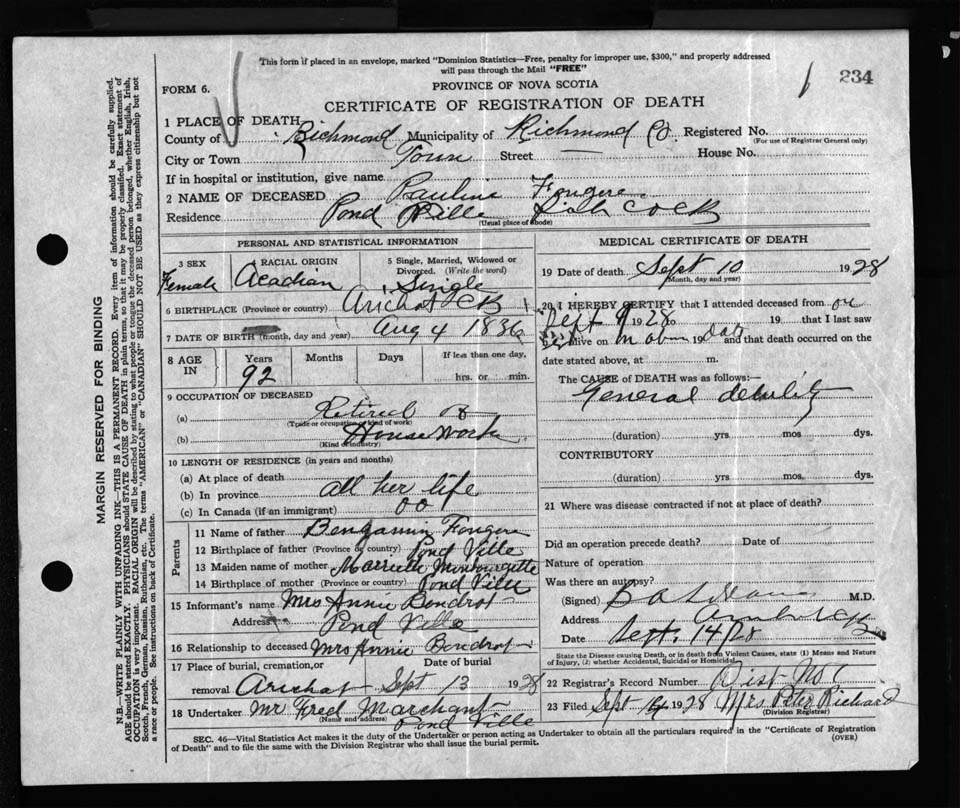 This form if placed in an envelope, marked "Dominion Statistics—Free, penalty for improper use, $300," and properly addressed
will pass through the Mail "FREE"
FORM 6.
PROVINCE OF NOVA SCOTIA
234
CERTIFICATE OF REGISTRATION OF DEATH
1 PLACE OF DEATH
County of Richmond Municipality of Richmond Co Registered No.
(For use of Registrar General only)
City or Town Town Street House No.
If in hospital or institution, give name
2 NAME OF DECEASED Pauline Fougere
Residence Pond Ville
(Usual place of abode)
PERSONAL AND STATISTICAL INFORMATION
3 SEX
Female
RACIAL ORIGIN
Acadian
5 Single, Married, Widowed or
Divorced. (Write the word)
Single
6 BIRTHPLACE (Province or country) Arichat CB
7 DATE OF BIRTH (month, day and year) Aug 4 1836
8 AGE IN
Years Months Days If less than one day,
92
hrs. or min.
9 OCCUPATION OF DECEASED
(a) Retired
(Trade or occupation or kind of work)
(b) House Work
(Kind of industry)
10 LENGTH OF RESIDENCE (in years and months)
(a) At place of death
(b) In province all her life
(c) In Canada (if an immigrant) 00
Parents
11 Name of father Bengamin Fougere
12 Birthplace of father (Province or country) Pond Ville
13 Maiden name of mother
14 Birthplace of mother (Province or country) Pond Ville
15 Informant's name Mrs Annie Bondrot
Address Pond Ville
16 Relationship to deceased Mrs Annie Bondrot
17 Place of burial, cremation, or
removal Arichat
Date of burial
Sept 13 1928
18 Undertaker Mr Fred Marchant
(Name and address)
Pond Ville
MEDICAL CERTIFICATE OF DEATH
19 Date of death Sept 10 1928
(Month, day and year)
20 I HEREBY CERTIFY that I attended deceased from on
Sept 9 1928 to 19 that I last saw
alive on 19 and that death occurred on the
date stated above, at m.
The CAUSE of DEATH was as follows:—
General debility
(duration) yrs mos dys.
CONTRIBUTORY
(duration) yrs mos dys.
21 Where was disease contracted if not at place of death?
Did an operation precede death? Date of
Nature of operation
Was there an autopsy?
(Signed) M.D.
Address
Date Sept. 14/28
State the Disease causing Death, or in death from Violent Causes, state (1) Means and Nature
of Injury, (2) whether Accidental, Suicidal or Homicidal
22 Registrar's Record Number Dist
23 Filed Sept 14 1928 Mrs Peter Richard
(Division Registrar)
SEC. 46—Vital Statistics Act makes it the duty of the Undertaker or person acting as Undertaker to obtain all the particulars required in the "Certificate of Registration
of Death" and to file the same with the Division Registrar who shall issue the burial permit.
(OVER)
MARGIN RESERVED FOR BINDING
N.B.—WRITE PLAINLY WITH UNFADING INK—THIS IS A PERMANENT RECORD. Every item of information should be carefully supplied.
AGE should be stated EXACTLY. PHYSICIANS should STATE CAUSE OF DEATH in plain terms, so that it may be properly classified. Exact statement of
OCCUPATION is very important. RACIAL ORIGIN will be described by stating to what people or tongue the deceased person belonged, whether English, Irish,
Scotch, French, German, Russian, Ruthenian, etc. The terms "AMERICAN" or "CANADIAN" SHOULD NOT BE USED as they express citizenship but not
a race or people. See instructions on back of Certificate.